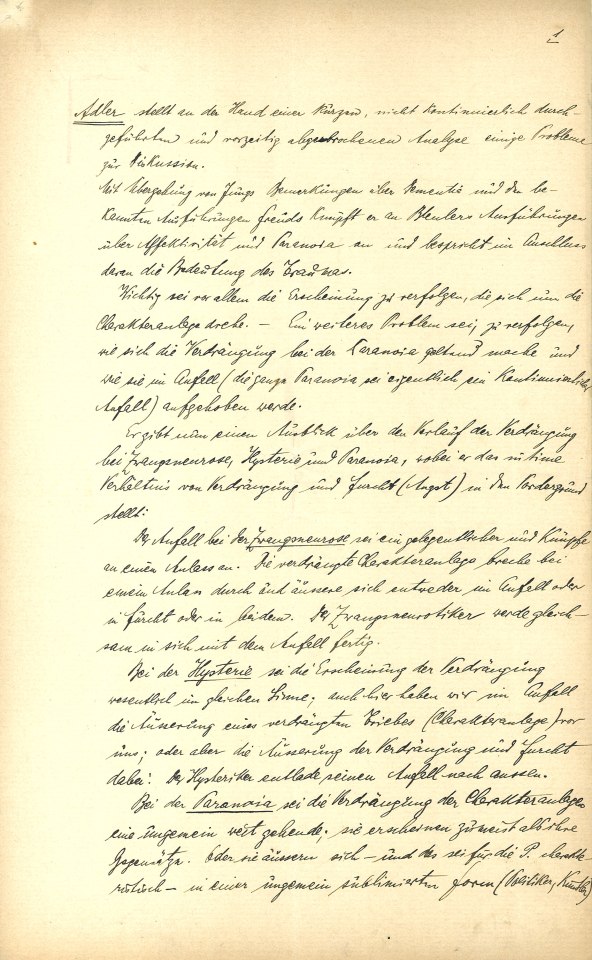 1
Adler stellt an der Hand einer kurzen, nicht kontinuierlich durch-
geführten und vorzeitig abgebrochenen Analyse einige Probleme
zur Diskussion.
Mit Übergehung von Jungs Bemerkungen über Dementia und den be-
kannten Ausführungen Freuds knüpft er an Bleulers Ausführungen
über Affektivität und Paranoia an und bespricht im Anschluss
daran die Bedeutung des Traumas.
Wichtig sei vor allem die Erscheinung zu verfolgen, die sich um die
Charakteranlage drehe. — Ein weiteres Problem sei, zu verfolgen,
wie sich die Verdrängung bei der Paranoia geltend mache und
wie sie im Anfall (die ganze Paranoia sei eigentlich ein kontinuierlicher
Anfall) aufgehoben werde.
Er gibt nun einen Ausblick über den Verlauf der Verdrängung
bei Zwangsneurose, Hysterie und Paranoia, wobei er das intime
Verhältnis von Verdrängung und Furcht (Angst) in den Vordergrund
stellt:
Der Anfall bei der Zwangsneurose sei ein gelegentlicher und knüpfe
an einen Anlass an. Die verdrängte Charakteranlage breche bei
einem Anlass durch und äussere sich entweder im Anfall oder
in Furcht oder in beidem. Der Zwangsneurotiker werde gleich-
sam in sich mit dem Anfall fertig.
Bei der Hysterie sei die Erscheinung der Verdrängung
wesentlich im gleichen Sinne; auch hier haben wir im Anfall
die Äusserung eines verdrängten Triebes (Charakteranlage) vor
uns; oder aber die Äusserung der Verdrängung und Furcht
dabei. Der Hysteriker entlade seinen Anfall nach aussen.
Bei der Paranoia sei die Verdrängung der Charakteranlagen
eine ungemein weit gehende; sie erscheinen zumeist als ihre
Gegensätze. Oder sie äussern sich — und das sei für die P. charakte-
ristisch — in einer ungemein sublimierten Form (Politiker, Künstler)